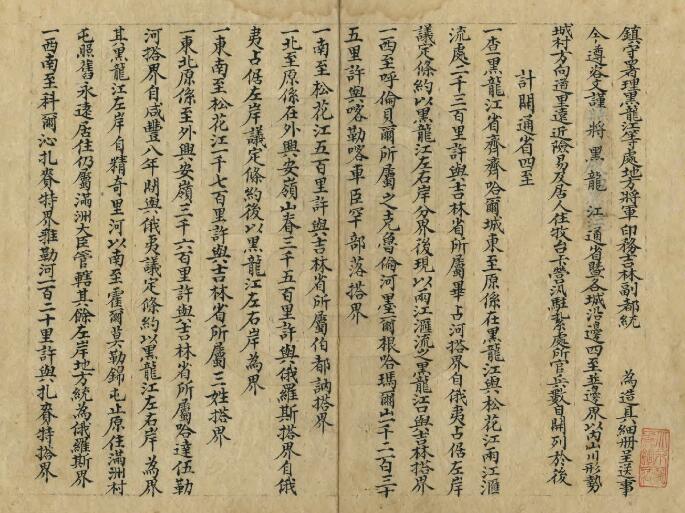 鎮守署理黑龍江等處地方將軍印務吉林副都統　　為造具細冊呈送事
今遵咨文謹將黑龍江通省暨各城沿邊四至並邊界以內山川形勢
城村方向道里遠近險易及居人住牧台卡營汛駐紥處所官兵數目開列於後
計開通省四至
一查黑龍江省齊齊哈爾城東至原係在黑龍江與松花江兩江滙
流處二千三百里許與吉林省所屬畢占河搭界自俄夷占居左岸
議定條約以黑龍江左右岸分界後現以兩江滙流之黑龍江口與吉林搭界
一西至呼倫貝爾所屬之克魯倫河墨爾根哈瑪爾山一千二百三十
五里許與喀勒喀車臣罕部落搭界
一南至松花江五百里許與吉林省所屬伯都訥搭界
一北至原係在外興安嶺山脊三千五百里許與俄羅斯搭界自俄
夷占居左岸議定條約後以黑龍江左右岸為界
一東南至松花江一千七百里許與吉林省所屬三姓搭界
一東北原係至外興安嶺三千六百里許與吉林省所屬哈達伍勒
河搭界自咸豐八年間與俄夷議定條約以黑龍江左右岸為界
其黑龍江左岸自精奇里河以南至霍爾莫勒錦屯止原住滿洲村
屯照舊永遠居住仍屬滿洲大臣管轄其餘左岸地方統為俄羅斯界
一西南至科爾沁扎賚特界雅勒河一百二十里許與扎賚特搭界